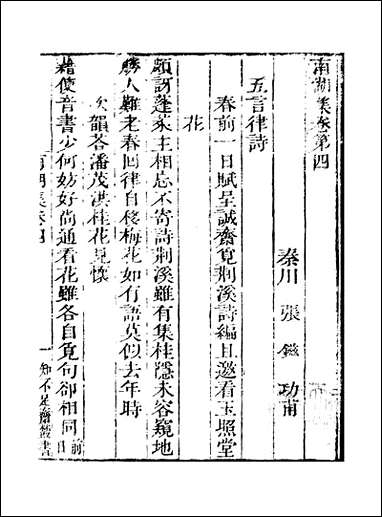 南湖集卷第四
秦川 張 鎡 功甫
五言律詩
春前一日賦呈誠齋覓荆溪詩編且邀看玉照堂
花
頗訝蓬萊主相忘不寄詩荆溪雖有集桂隱未容窺地
勝人難老春回律自移梅花如有語莫似去年時
次韻答潘茂洪桂花見懷
藉使音書少何妨好尙通看花雖各自覓句卻相同
前
南湖集卷四
一
知不足齋叢書